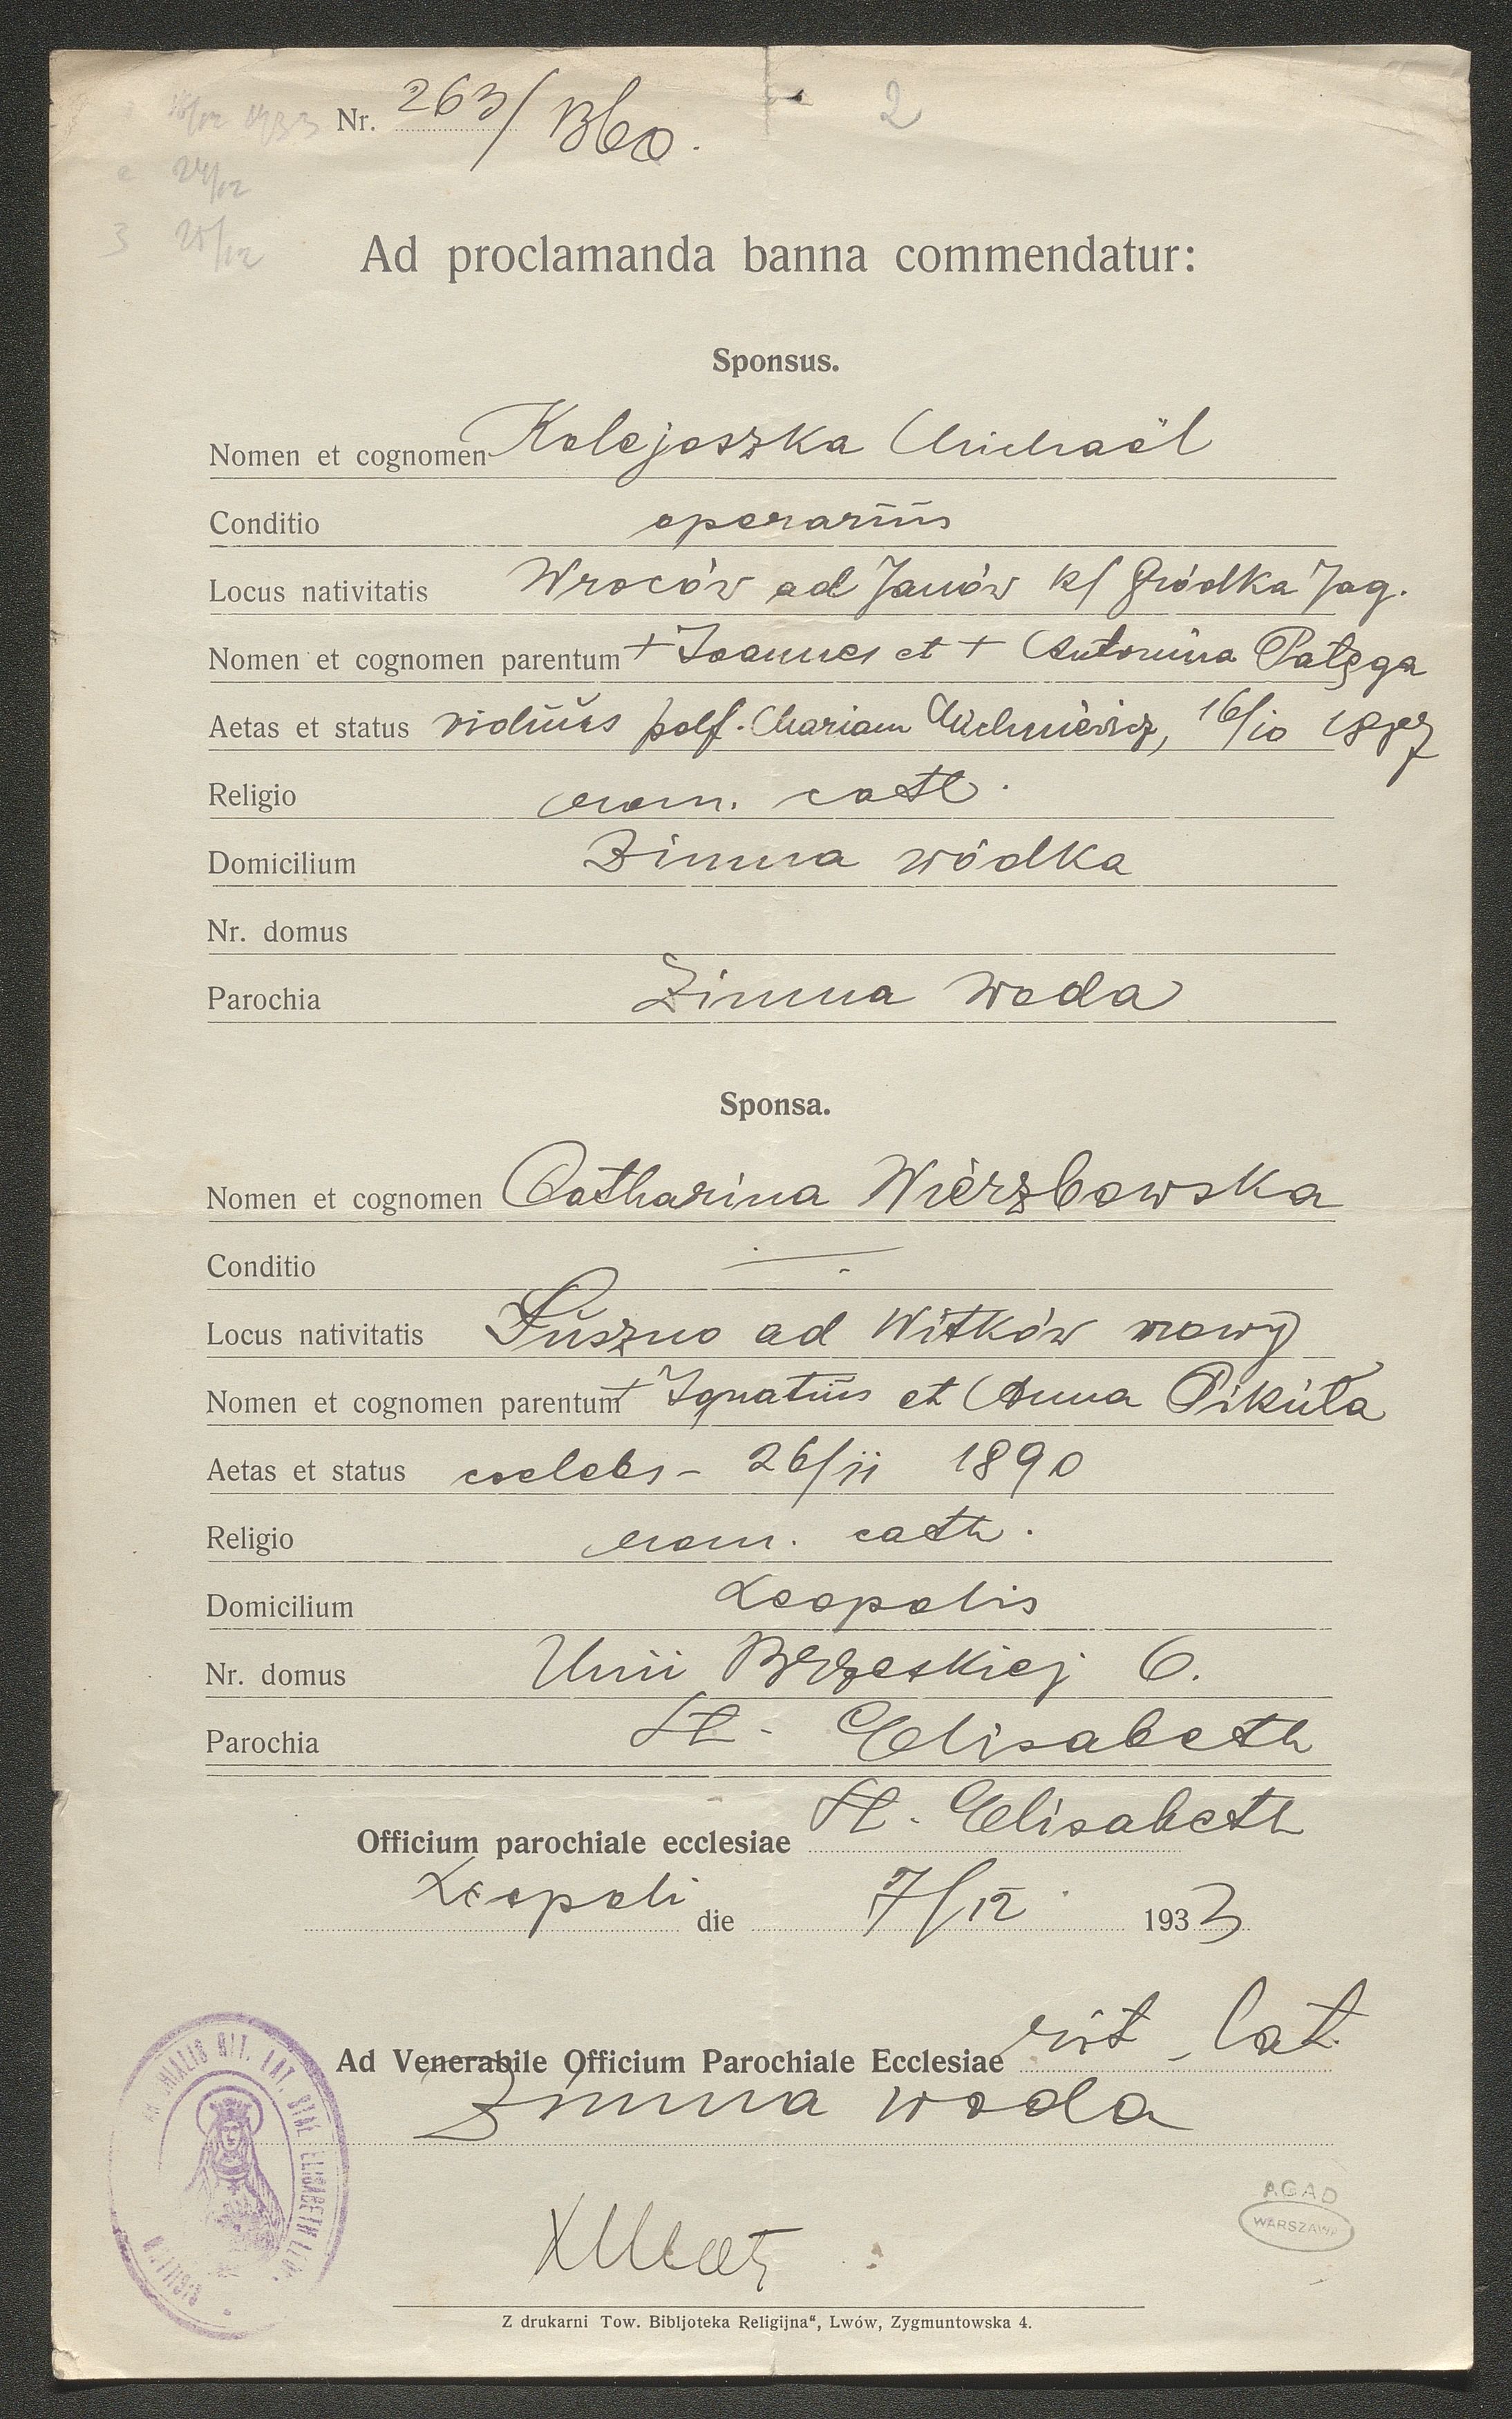 Nr. 263/
2
24/12
3 25/12
Ad proclamanda banna commendatur:
Sponsus.
Nomen et cognomen Kolejoszka Michaël
Conditio operarius
Locus nativitatis Wroców ad Janów k/ Gródka Jag.
Nomen et cognomen parentum + Joannes et + Antonina Patęga
Aetas et status viduus post. Mariam Michniewicz, 16/10
Religio rom. cath.
Domicilium Zimna wódka
Nr. domus
Parochia Zimna Woda
Sponsa.
Nomen et cognomen Catharina Wierzbowska
Conditio —
Locus nativitatis Suszno ad Witków nowy
Nomen et cognomen parentum + Ignatius et Anna Pikuła
Aetas et status coelebs - 26/11 1890
Religio rom. cath.
Domicilium Leopolis
Nr. domus Unii Brzeskiej 6.
Parochia St. Elisabeth
Officium parochiale ecclesiae St. Elisabeth
Leopoli die 7/12 1933
Ad Venerabile Officium Parochiale Ecclesiae rit. lat.
Zimna woda
RIT. LAT. STAE ELISABETH
AGAD
WARSZAWA
Z drukarni Tow. Bibljoteka Religijna“, Lwów, Zygmuntowska 4.